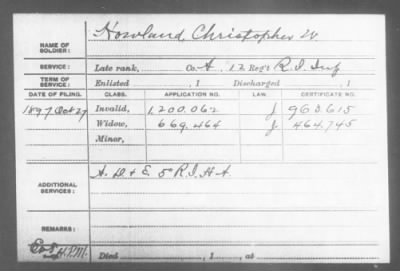 Howland Christopher W
NAME OF SOLDIER:
SERVICE: Late rank, Co. A, 12 Reg't R.I. Inf
TERM OF SERVICE: Enlisted , 1 Discharged , 1
DATE OF FILING. CLASS. APPLICATION NO. LAW. CERTIFICATE NO.
1897 Oct 27 Invalid, 1,200,062 J 960.615
Widow, 669.464 J. 464.745
Minor,
ADDITIONAL SERVICES: A. D + E. 5" R.I. H.A.
REMARKS:
H.P.M. Died , 1 , at